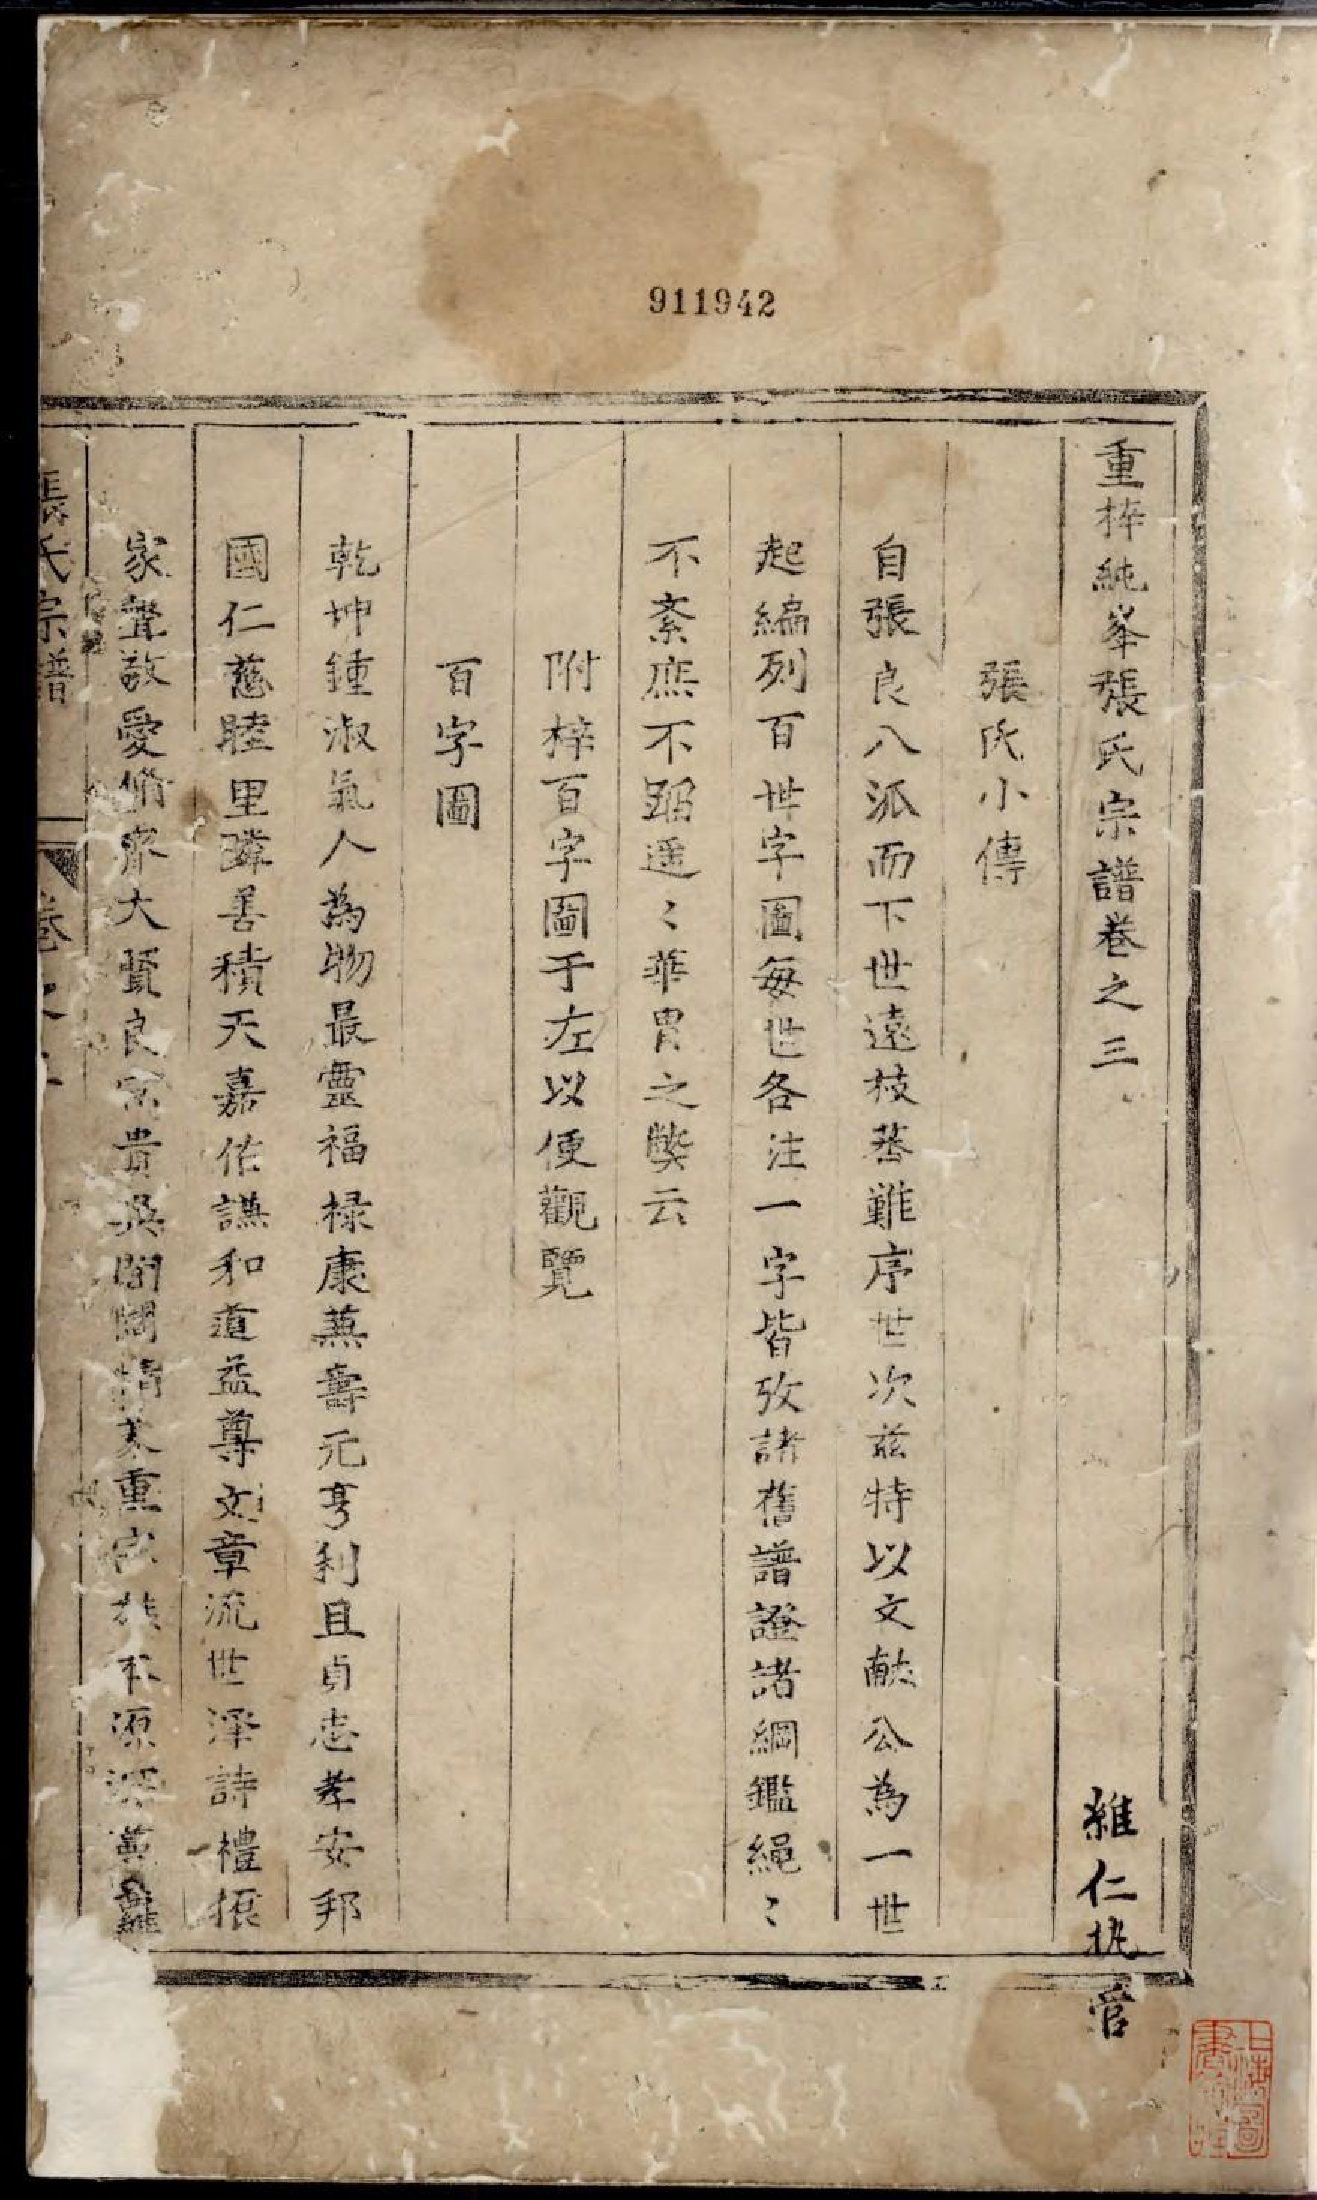 911942
重梓純峯張氏宗譜卷之三
雜仁执管
張氏小傳
自張良八派而下世遠枝蕃難序世次茲特以文献公為一世
起編列百世字圖每世各注一字皆攷諸舊譜證諸綱鑑繩〻
不紊庶不蹈遥〻華胄之獘云
附梓百字圖于左以便觀覽
百字圖
乾坤鍾淑氣人為物最靈福祿康蕪壽元亨利且貞忠孝安邦
國仁慈睦里隣善積天嘉佑謙和道益尊文章流世澤詩禮振
家聲敬愛脩齊大賢良富貴吳閥閱情重宗族本源深
張氏宗譜
卷之
上海圖書館藏